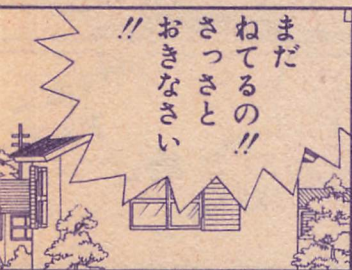 まだ
ねてるの!!
さっさと
おきなさい
!!